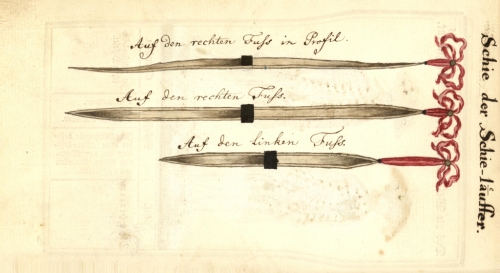 Auf den rechten Fuss in Profil.
Auf den rechten Fuss.
Auf den linken Fuss.
Schie der Schie-läuffer.